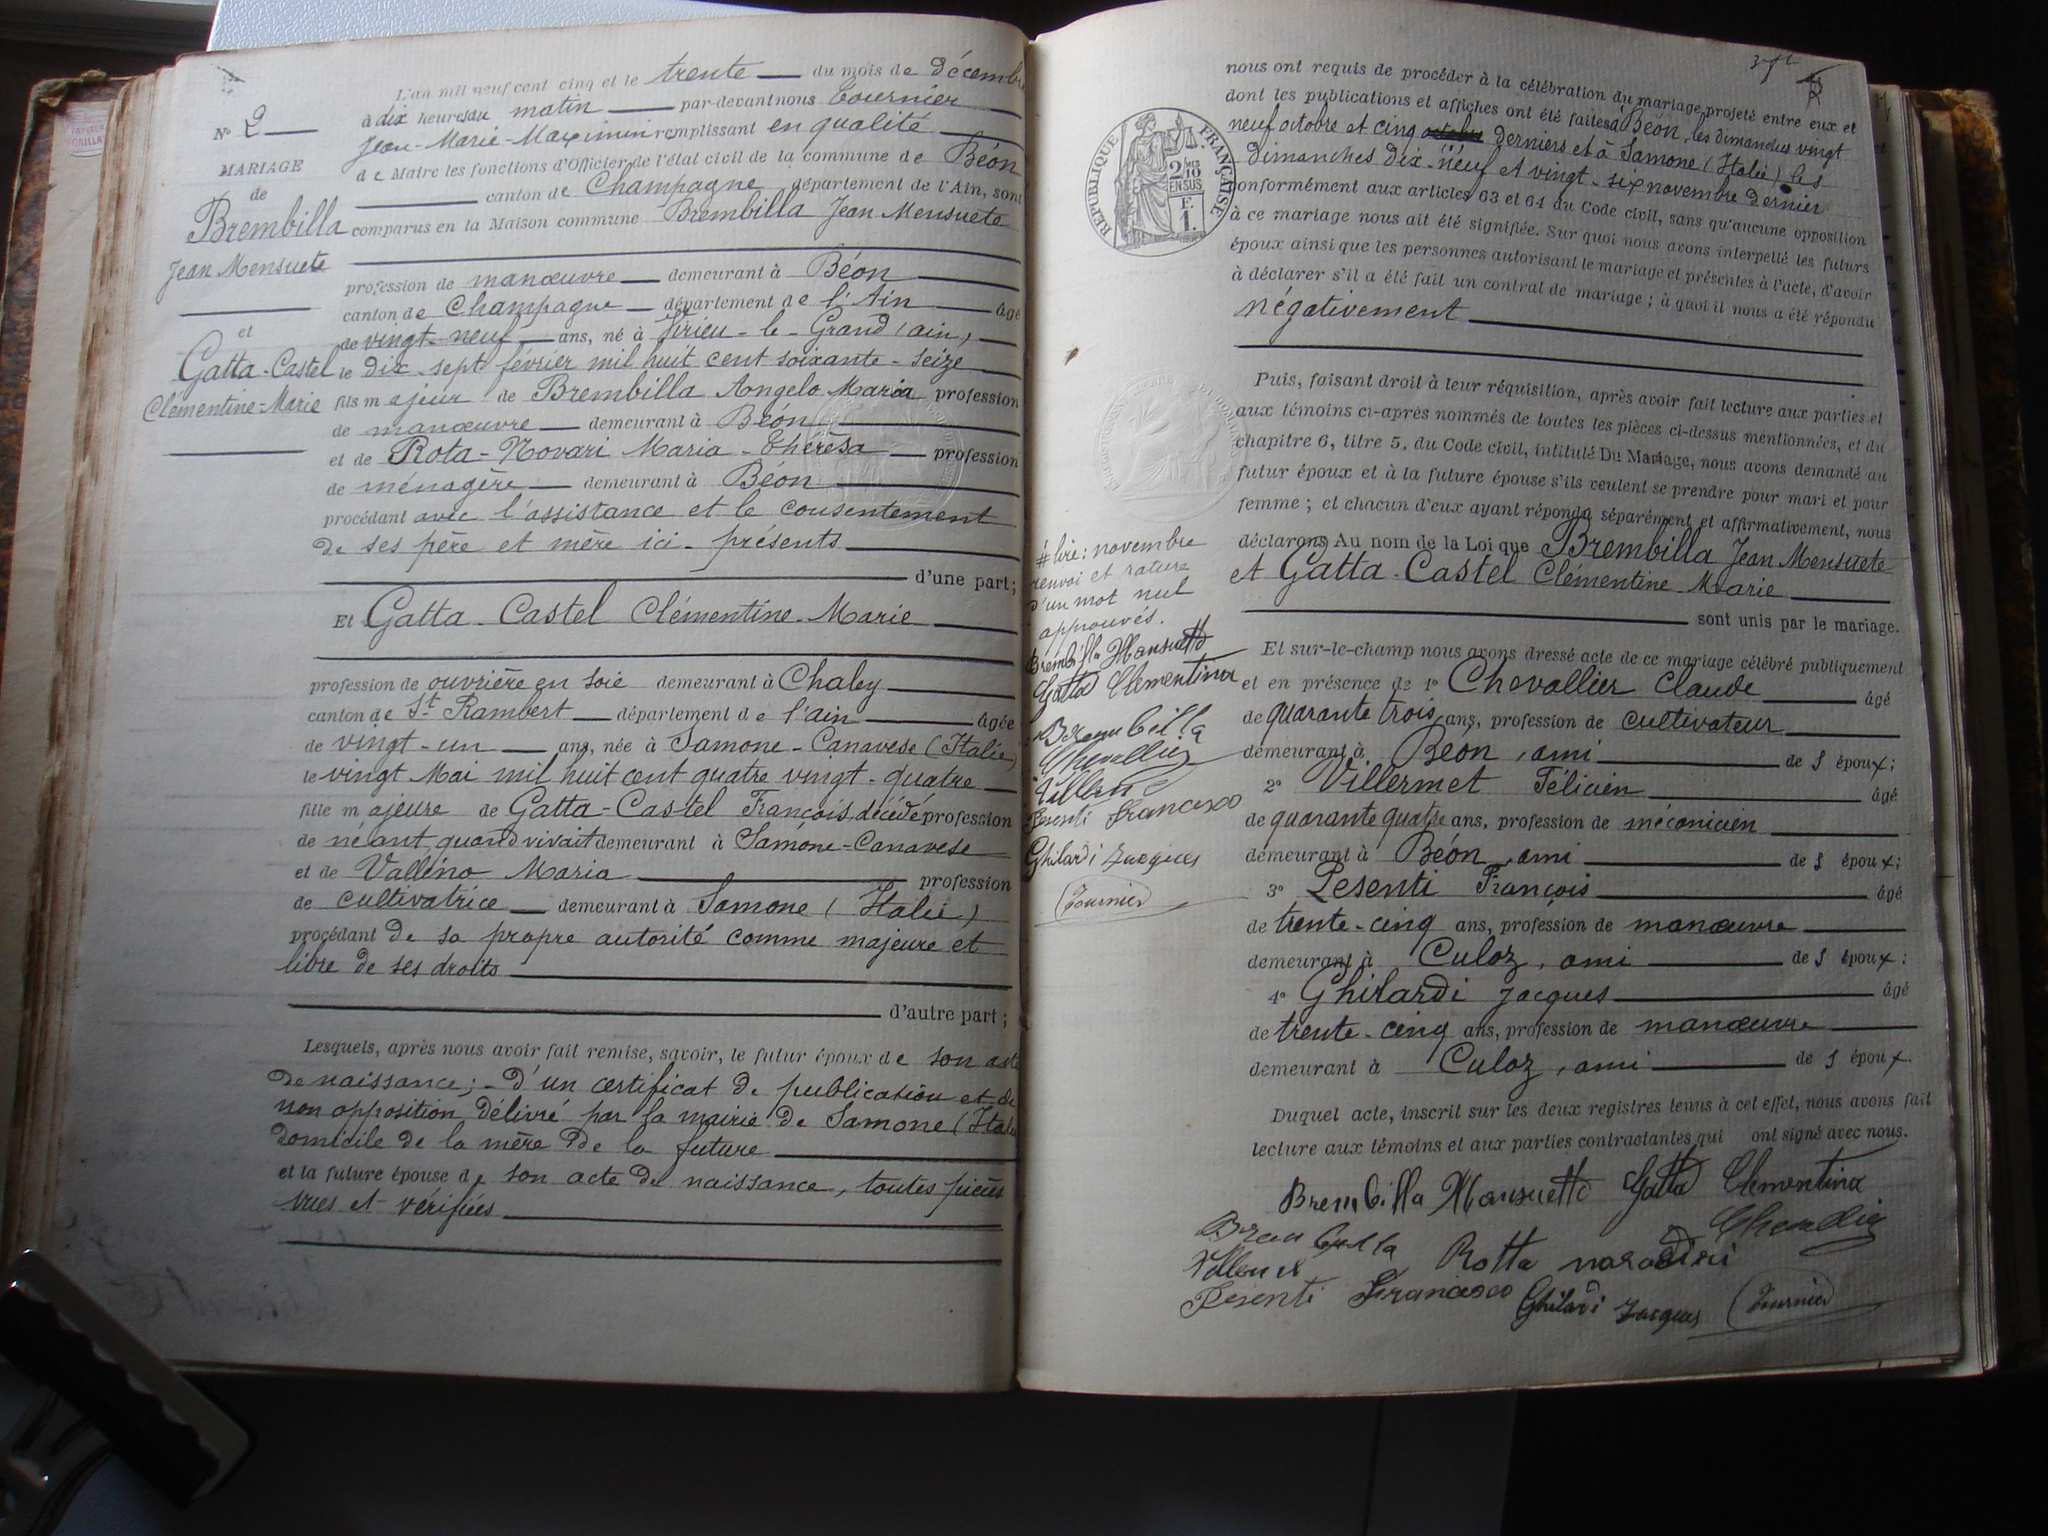 L'an mil neuf cent cinq et le trente du mois de décembre
N° 2
à dix heures du matin par-devant nous Tournier
Jean-Marie-Maximin remplissant en qualité
MARIAGE
de Maire les fonctions d'Officier de l'état civil de la commune de Béon
de
canton de Champagne département de l'Ain, sont
Brembilla
comparus en la Maison commune Brembilla Jean Mensuete
Jean Mensuete
profession de manœuvre demeurant à Béon
canton de Champagne département de l'Ain âgé
et
de vingt-neuf ans, né à Virieu-le-Grand (ain)
Gatta-Castel
le dix-sept février mil huit cent soixante-seize
Clémentine-Marie
fils majeur de Brembilla Angelo Maria profession
de manœuvre demeurant à Béon
et de Rota-Novari Maria-Thérèsa profession
de ménagère demeurant à Béon
procédant avec l'assistance et le consentement
de ses père et mère ici-présents
d'une part;
Et Gatta-Castel Clémentine-Marie
profession de ouvrière en soie demeurant à Chaley
canton de St Rambert département de l'ain âgée
de vingt-un ans, née à Samone-Canavese (Italie)
le vingt Mai mil huit cent quatre vingt-quatre
fille majeure de Gatta-Castel François, décédé profession
de néant, quand vivait demeurant à Samone-Canavese
et de Valléno Maria profession
de cultivatrice demeurant à Samone (Italie)
procédant de sa propre autorité comme majeure et
libre de ses droits
d'autre part;
Lesquels, après nous avoir fait remise, savoir, le futur époux de son acte
de naissance; - D'un certificat de publication et de
non opposition délivré par la mairie de Samone (Italie)
domicile de la mère de la future
et la future épouse de son acte de naissance, toutes pièces
vues et vérifiées
nous ont requis de procéder à la célébration du mariage projeté entre eux et
dont les publications et affiches ont été faites à Béon, les dimanches vingt
neuf octobre et cinq octobre derniers et à Samone (Italie) les
dimanches dix-neuf et vingt-six novembre dernier
conformément aux articles 63 et 64 du Code civil, sans qu'aucune opposition
à ce mariage nous ait été signifiée. Sur quoi nous avons interpellé les futurs
époux ainsi que les personnes autorisant le mariage et présentes à l'acte, d'avoir
à déclarer s'il a été fait un contrat de mariage; à quoi il nous a été répondu
négativement
RÉPUBLIQUE FRANÇAISE
2/10 EN SUS
F. 1.
Puis, faisant droit à leur réquisition, après avoir fait lecture aux parties et
aux témoins ci-après nommés de toutes les pièces ci-dessus mentionnées, et du
chapitre 6, titre 5, du Code civil, intitulé Du Mariage, nous avons demandé au
futur époux et à la future épouse s'ils veulent se prendre pour mari et pour
femme; et chacun d'eux ayant répondu séparément et affirmativement, nous
déclarons Au nom de la Loi que Brembilla Jean Mensuete
et Gatta-Castel Clémentine-Marie
sont unis par le mariage.
# lire: novembre
renvoi et rature
d'un mot nul
approuvés.
Brembilla Mansuetto
Gatta Clementina
Brembilla
Chevallier
Pesenti Francesco
Ghilardi Jacques
Tournier
Et sur-le-champ nous avons dressé acte de ce mariage célébré publiquement
et en présence de 1° Chevallier Claude âgé
de quarante trois ans, profession de cultivateur
demeurant à Béon, ami des époux;
2° Villermet Félicien âgé
de quarante quatre ans, profession de mécanicien
demeurant à Béon, ami des époux;
3° Pesenti François âgé
de trente-cinq ans, profession de manœuvre
demeurant à Culoz, ami des époux;
4° Ghilardi Jacques âgé
de trente-cinq ans, profession de manœuvre
demeurant à Culoz, ami des époux.
Duquel acte, inscrit sur les deux registres tenus à cet effet, nous avons fait
lecture aux témoins et aux parties contractantes qui ont signé avec nous.
Brembilla Mansuetto Gatta Clementina
Brembilla Chevallier
Rotta
Pesenti Francesco Ghilardi Jacques Tournier